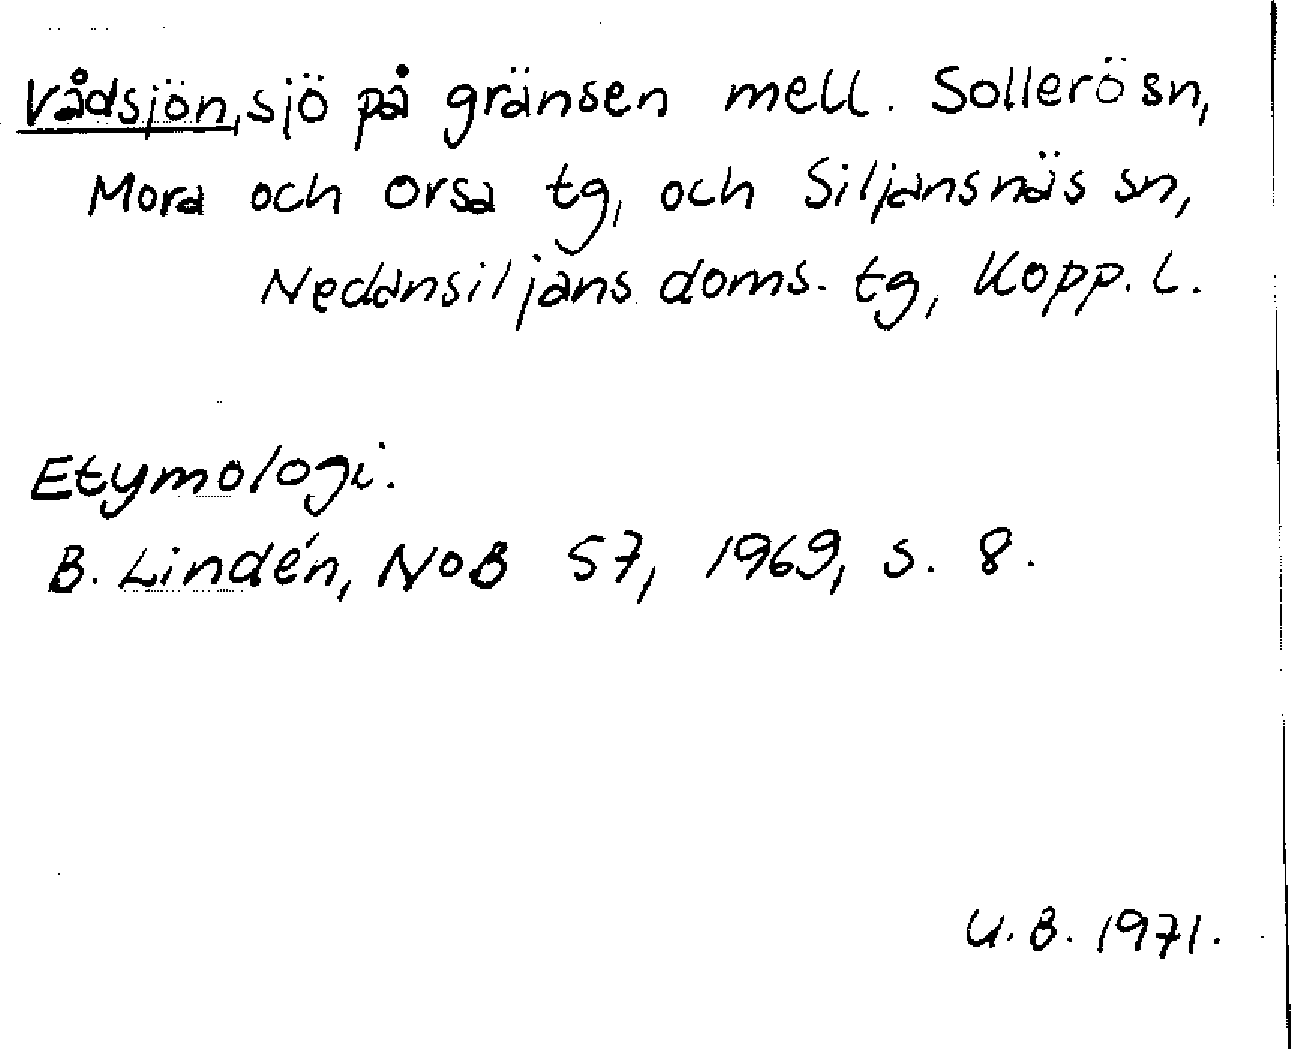 Vådsjön, sjö på gränsen mell. Sollerö sn,
Mora och Orsa tg, och Siljansnäs sn,
Nedansiljans doms. tg, Kopp. l.
Etymologi.
B. Lindén, NoB 57, 1969, s. 8.
U. B. 1971.